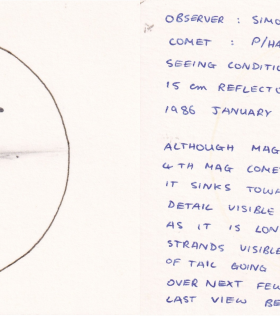 OBSERVER : SIMO
COMET : P/HA
SEEING CONDITIO
15 cm REFLECTO
1986 JANUARY
ALTHOUGH MAG
4TH MAG COME
IT SINKS TOWA
DETAIL VISIBLE
AS IT IS LON
STRANDS VISIBLE
OF TAIL GOING
OVER NEXT FEW
LAST VIEW BE